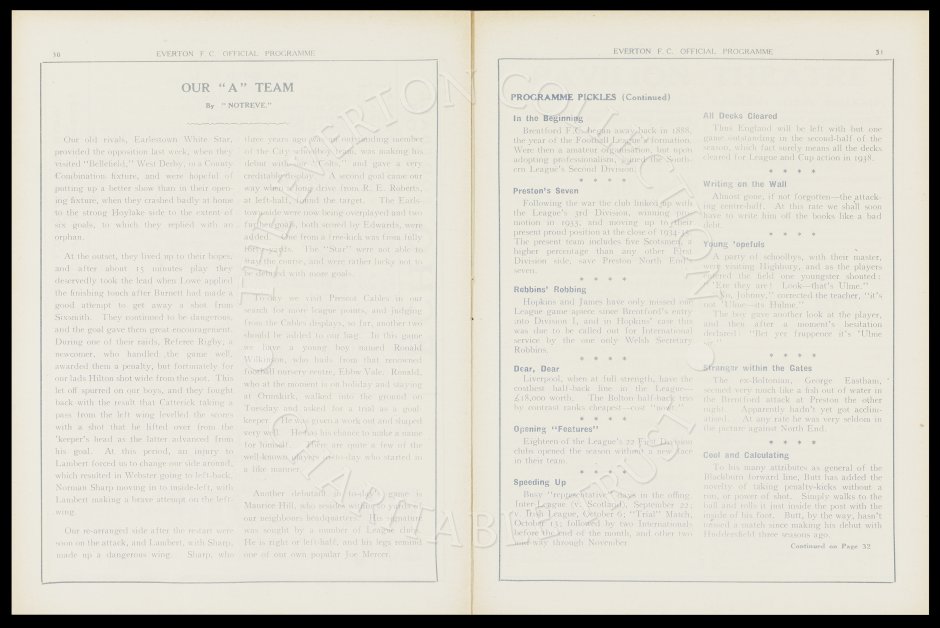 30
EVERTON F. C. OFFICIAL PROGRAMME
OUR "A" TEAM
By "NOTREVE."
Our old rivals, Earlestown White Star,
provided the opposition last week, when they
visited "Bellefield," West Derby, in a County
Combination fixture, and were hopeful of
putting up a better show than in their open-
ing fixture, when they crashed badly at home
to the strong Hoylake side to the extent of
six goals, to which they replied with an
orphan.
At the outset, they lived up to their hopes,
and after about 15 minutes play they
deservedly took the lead when Lowe applied
the finishing touch after Burnett had made a
good attempt to get away a shot from
Sixsmith. They continued to be dangerous,
and the goal gave them great encouragement.
During one of their raids, Referee Rigby, a
newcomer, who handled the game well,
awarded them a penalty, but fortunately for
our lads Hilton shot wide from the spot. This
let off spurred on our boys, and they fought
back with the result that Catterick taking a
pass from the left wing levelled the scores
with a shot that he lifted over from the
'keeper's head as the latter advanced from
his goal. At this period, an injury to
Lambert forced us to change our side around,
which resulted in Webster going to left-back,
Norman Sharp moving in to inside-left, with
Lambert making a brave attempt on the left-
wing.
Our re-arranged side after the restart were
soon on the attack, and Lambert, with Sharp,
made up a dangerous wing. Sharp, who
three years ago was an outstanding member
of the City schoolboy team, was making his
debut with our "Colts," and gave a very
creditable display. A second goal came our
way when a long drive from R. E. Roberts,
at left-half, found the target. The Earls-
town side were now being overplayed and two
further goals, both scored by Edwards, were
added. One from a free-kick was from fully
forty yards. The "Star" were not able to
stay the course, and were rather lucky not to
be debited with more goals.
To-day we visit Prescot Cables in our
search for more league points, and judging
from the Cables displays, so far, another two
should be added to our bag. In this game
we have a young boy named Ronald
Wilkinson, who hails from that renowned
football nursery centre, Ebbw Vale. Ronald,
who at the moment is on holiday and staying
at Ormskirk, walked into the ground on
Tuesday and asked for a trial as a goal-
keeper. He was given a work out and shaped
very well. He has his chance to make a name
for himself. There are quite a few of the
well-known players of to-day who started in
a like manner.
Another debutant in to-day's game is
Maurice Hill, who resides within 50 yards of
our neighbours headquarters. His signature
was sought by a number of League clubs.
He is right or left-half, and his legs remind
one of our own popular Joe Mercer.
EVERTON F. C. OFFICIAL PROGRAMME
31
PROGRAMME PICKLES (Continued)
In the Beginning
Brentford F.C. began away back in 1888,
the year of the Football League's formation.
Were then a amateur organisation, but upon
adopting professionalism, joined the South-
ern League's Second Division.
* * * *
Preston's Seven
Following the war the club linked up with
the League's 3rd Division, winning pro-
motion in 1933, and moving up to their
present proud position at the close of 1934-35.
The present team includes five Scotsmen, a
higher percentage than any other First
Division side, save Preston North End's
seven.
* * * *
Robbins' Robbing
Hopkins and James have only missed one
League game apiece since Brentford's entry
into Division I, and in Hopkins' case this
was due to be called out for International
service by the one only Welsh Secretary
Robbins.
* * * *
Dear, Dear
Liverpool, when at full strength, have the
costliest half-back line in the League—
£18,000 worth. The Bolton half-back trio
by contrast ranks cheapest—cost "nowt."
* * * *
Opening "Features"
Eighteen of the League's 22 First Division
clubs opened the season without a new face
in their team.
* * * *
Speeding Up
Busy "representative" days in the offing.
Inter-League (v. Scotland), September 22;
v. Irish League, October 6; "Trial" Match,
October 13; followed by two Internationals
before the end of the month, and other two
mid-way through November
All Decks Cleared
Thus England will be left with but one
game outstanding in the second-half of the
season, which fact surely means all the decks
cleared for League and Cup action in 1938.
* * * *
Writing on the Wall
Almost gone, if not forgotten—the attack-
ing centre-half. At this rate we shall soon
have to write him off the books like a bad
debt.
* * * *
Young 'opefuls
A party of schoolboys, with their master,
were visiting Highbury, and as the players
entered the field one youngster shouted:
"'Ere they are! Look—that's Ulme."
"No, Johnny," corrected the teacher, "it's
not 'Ulme—its Hulme."
The boy gave another look at the player,
and then after a moment's hesitation
declared: "Bet yer frupperce it's 'Ulme
sir."
* * * *
Stranger within the Gates
The ex-Boltonian, George Eastham,
seemed very much like a fish out of water in
the Brentford attack at Preston the other
night. Apparently hadn't yet got acclim-
At any rate he was very seldom in
the picture against North End.
* * * *
Cool and Calculating
To his many attributes as general of the
Blackburn forward line, Butt has added the
novelty of taking penalty-kicks without a
run, or power of shot. Simply walks to the
ball and rolls it just inside the post with the
inside of his foot. Butt, by the way, hasn't
missed a match since making his debut with
Huddersfield three seasons ago.
Continued on Page 32
THE EVERTON COLLECTION
CHARITABLE TRUST